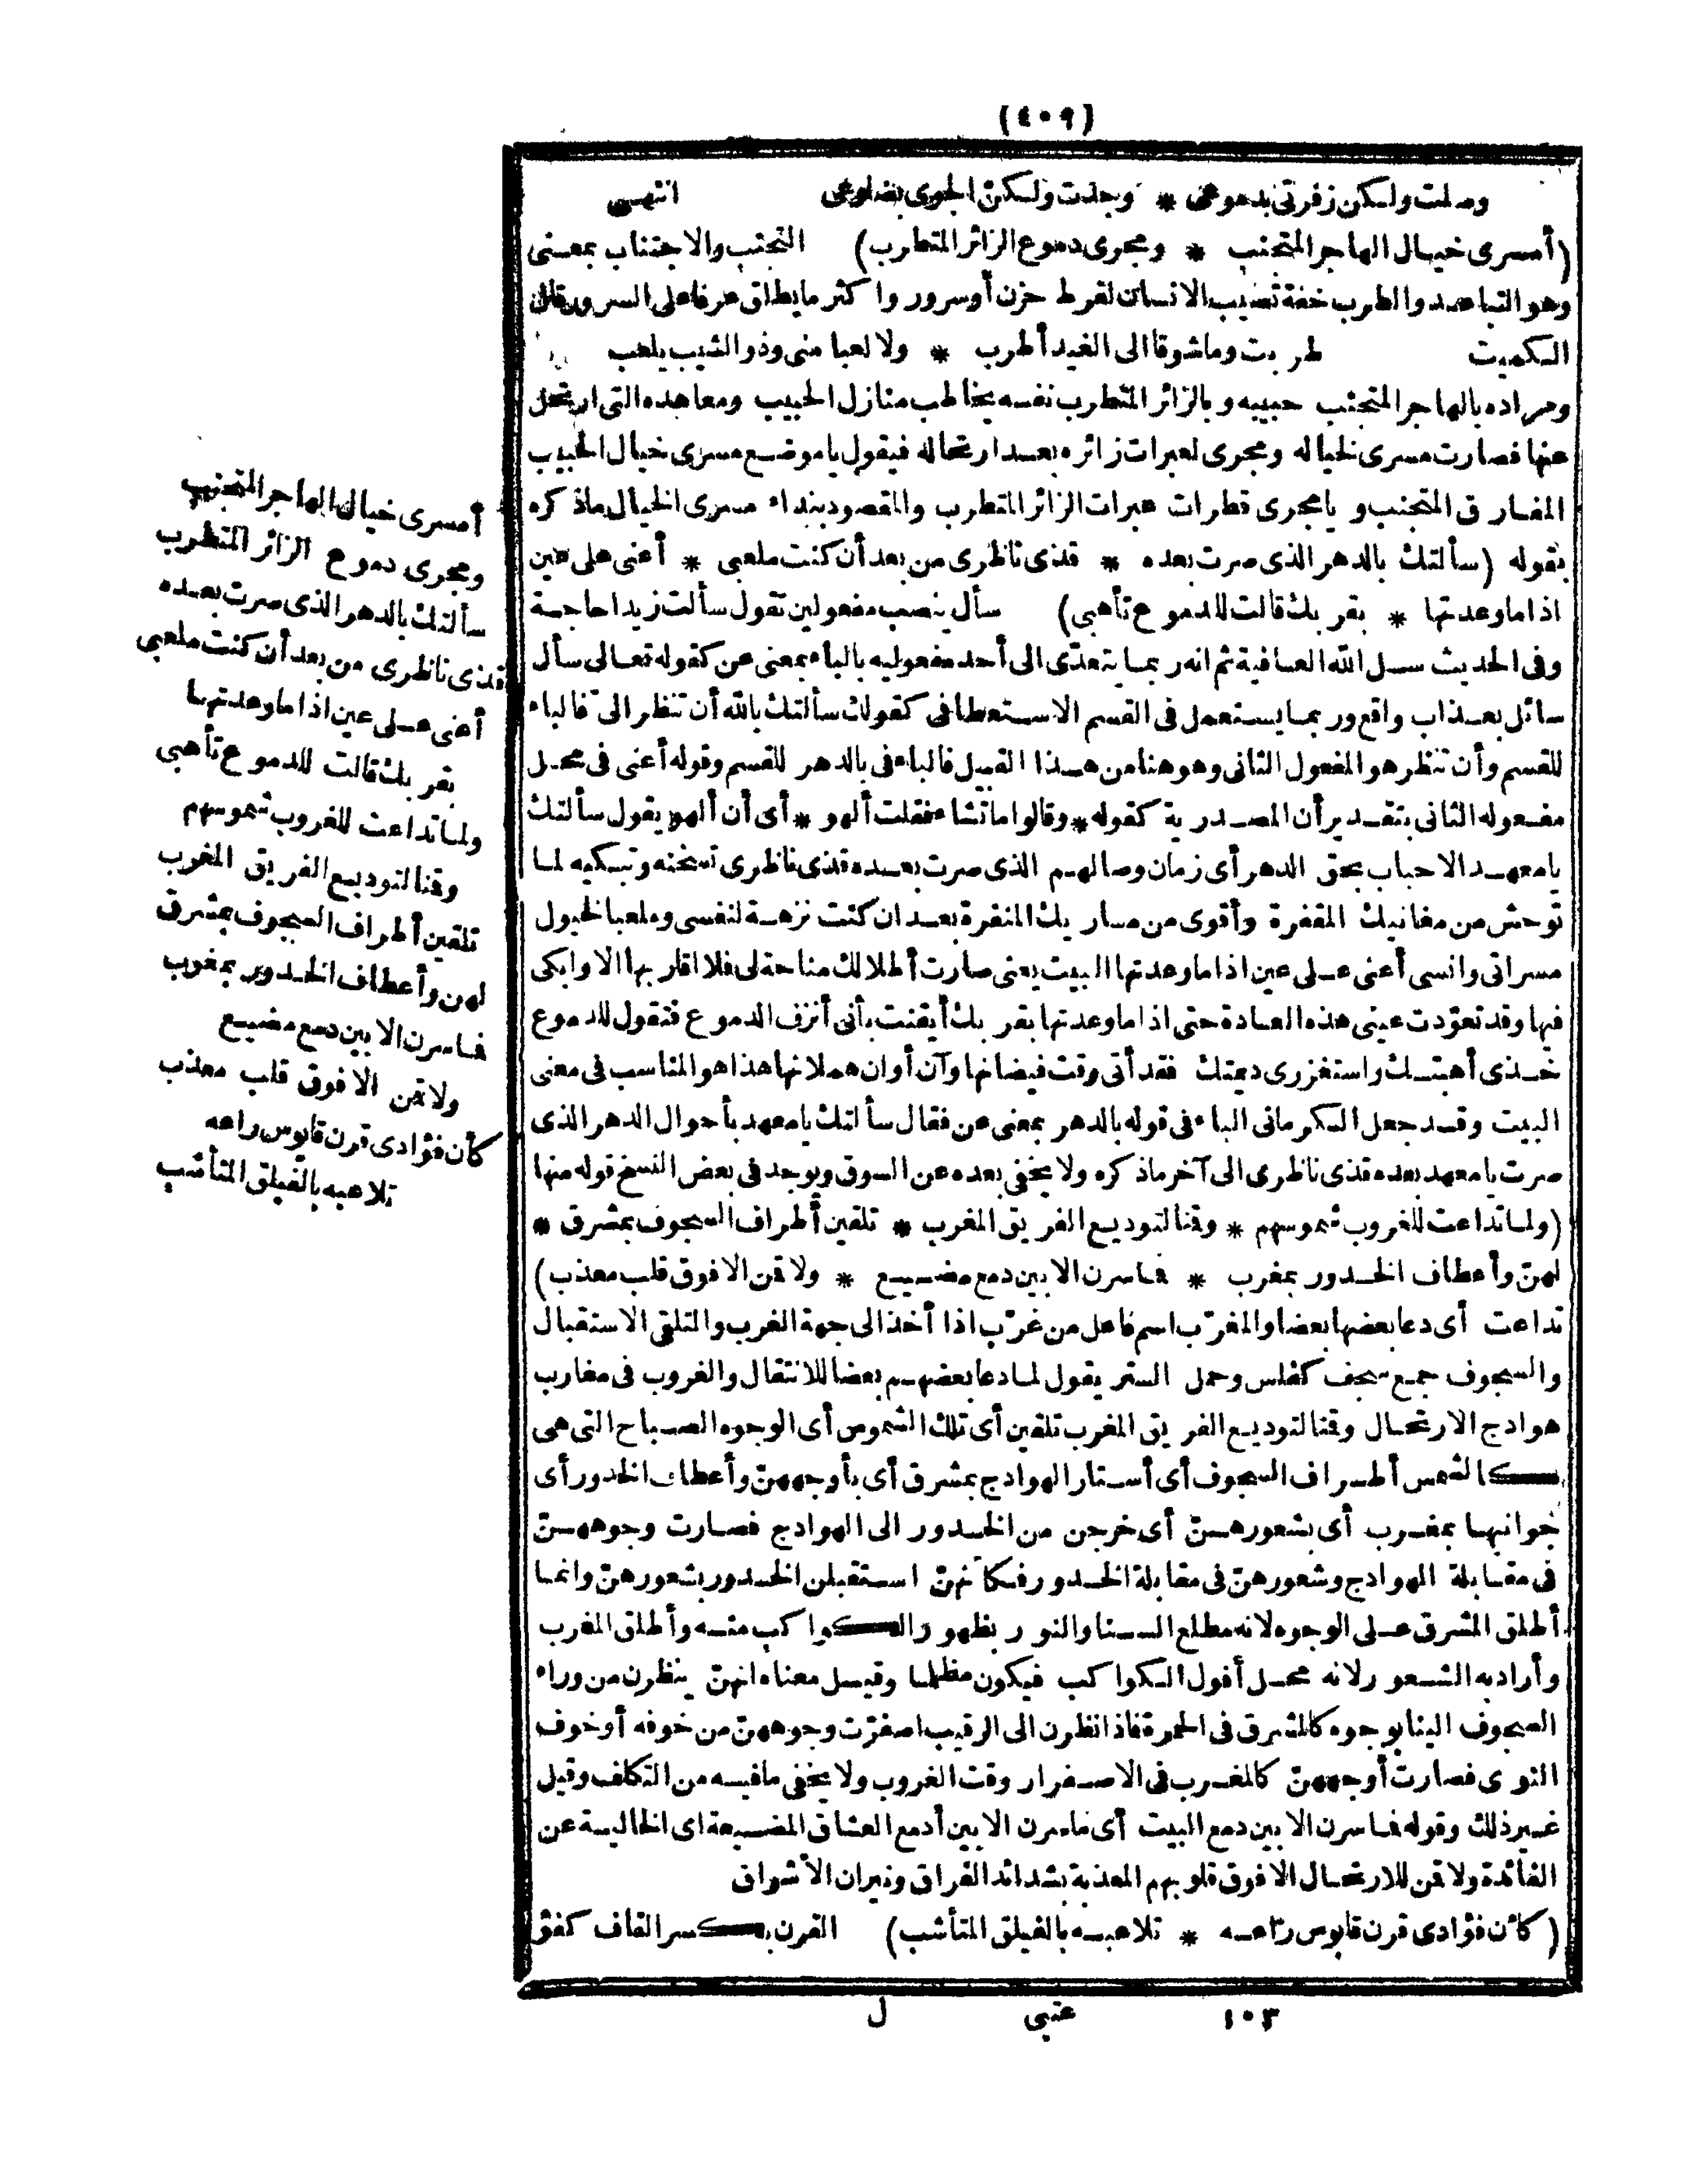 (٤٠٩)
وصلت ولكن زفرتى بدموعى * وجذت ولكنّ الجوى بضلوعى انتهى
(أمسرى خيال الهاجر المتجنب * ومجرى دموع الزائر المتطرب) التجنب والاجتناب بمعنى
وهو التباعد والطرب خفة تصيب الانسان لفرط حزن أو سرور واكثر ما يطلق عرفا على السرور قال
الكميت طربت وما شوقا الى الغيد أطرب * ولا لعبا منى وذو الشيب يلعب
ومراده بالهاجر المتجنب حبيبه و بالزائر المتطرب نفسه يخاطب منازل الحبيب ومعاهده التى ارتحل
عنها فصارت مسرى لخياله ومجرى لعبرات زائره بعد ارتحاله فيقول يا موضع مسرى خيال الحبيب
المفارق المتجنب و يا مجرى قطرات عبرات الزائر المتطرب والمقصود بنداء مسرى الخيال ماذكره
بقوله (سألتك بالدهر الذى صرت بعده * قذى ناظرى من بعد أن كنت ملعبى * أعنى على عين
اذا ما وعدتها * بقربك قالت للدموع تأهبى) سأل ينصب مفعولين تقول سألت زيدا حاجة
وفى الحديث سل الله العافية ثم انه ربما يتعدّى الى أحد مفعوليه بالباء بمعنى عن كقوله تعالى سأل
سائل بعذاب واقع وربما يستعمل فى القسم الاستعطافى كقولك سألتك بالله أن تنظر الىّ فالباء
للقسم وأن تنظر هو المفعول الثانى وهو هنا من هذا القبيل فالباء فى بالدهر للقسم وقوله أعنى فى محل
مفعوله الثانى بتقدير أن المصدرية كقوله * وقالوا ما تشاء فقلت ألهو * أى أن ألهو يقول سألتك
يا معهد الاحباب بحق الدهر أى زمان وصالهم الذى صرت بعده قذى ناظرى تسخنه وتبكيه لما
توحش من مغانيك المقفرة وأقوى من مساريك المنفرة بعد ان كنت نزهة لنفسى وملعبا لخيول
مسراتى وانسى أعنى على عين اذا ما وعدتها البيت يعنى صارت أطلالك مناحة لى فلا اقاربها الا وابكى
فيها وقد تعوّدت عينى هذه العادة حتى اذا ما وعدتها بقربك أيقنت بأنى أنزف الدموع فتقول للدموع
خذى أهبتك واستغزرى ديمتك فقد أتى وقت فيضانها وآن أوان هملانها هذا هو المناسب فى معنى
البيت وقد جعل الكرمانى الباء فى قوله بالدهر بمعنى عن فقال سألتك يا معهد بأحوال الدهر الذى
صرت يا معهد بعده قذى ناظرى الى آخر ماذكره ولا يخفى بعده عن السوق ويوجد فى بعض النسخ قوله منها
(ولما تداعت للغروب شموسهم * وقنا لتوديع الفريق المغرب * تلقين أطراف السجوف بمشرق *
لهنّ وأعطاف الخدور بمغرب * فما سرن الا بين دمع مضيع * ولا قن الا فوق قلب معذب)
تداعت أى دعا بعضها بعضا والمغرّب اسم فاعل من غرّب اذا أخذ الى جهة الغرب والتلقى الاستقبال
والسجوف جمع سجف كفلس وحمل الستر يقول لما دعا بعضهم بعضا للانتقال والغروب فى مغارب
هوادج الارتحال وقنا لتوديع الفريق المغرب تلقين أى تلك الشموس أى الوجوه الصباح التى هى
كالشمس أطراف السجوف أى أستار الهوادج بمشرق أى بأوجههنّ وأعطاف الخدور أى
جوانبها بمغرب أى بشعورهنّ أى خرجن من الخدور الى الهوادج فصارت وجوههنّ
فى مقابلة الهوادج وشعورهنّ فى مقابلة الخدور فكأنهنّ استقبلن الخدور بشعورهنّ وانما
أطلق المشرق على الوجوه لانه مطلع السنا والنور بظهور الكواكب منه وأطلق المغرب
وأراد به الشعور لانه محل أفول الكواكب فيكون مظلما وقيل معناه انهنّ ينظرن من وراء
السجوف الينا بوجوه كالمشرق فى الحمرة فاذا نظرن الى الرقيب اصفرّت وجوههنّ من خوفه أو خوف
النوى فصارت أوجههنّ كالمغرب فى الاصفرار وقت الغروب ولا يخفى ما فيه من التكلف وقيل
غير ذلك وقوله فما سرن الا بين دمع البيت أى ما سرن الا بين أدمع العشاق المضيعة اى الخالية عن
الفائدة ولا قن للارتحال الا فوق قلوبهم المعذبة بشدائد الفراق ونيران الأشواق
(كأن فؤادى قرن قابوس راعه * تلاعبه بالفيلق المتأشب) القرن بكسر القاف كفؤ
١٠٣ عتبى ل
أمسرى خيال الهاجر المتجنب
ومجرى دموع الزائر المتطرب
سألتك بالدهر الذى صرت بعده
قذى ناظرى من بعد أن كنت ملعبى
أعنى على عين اذا ما وعدتها
بقربك قالت للدموع تأهبى
ولما تداعت للغروب شموسهم
وقنا لتوديع الفريق المغرب
تلقين أطراف السجوف بمشرق
لهن وأعطاف الخدور بمغرب
فما سرن الا بين دمع مضيع
ولا قن الا فوق قلب معذب
كأن فؤادى قرن قابوس راعه
تلاعبه بالفيلق المتأشب